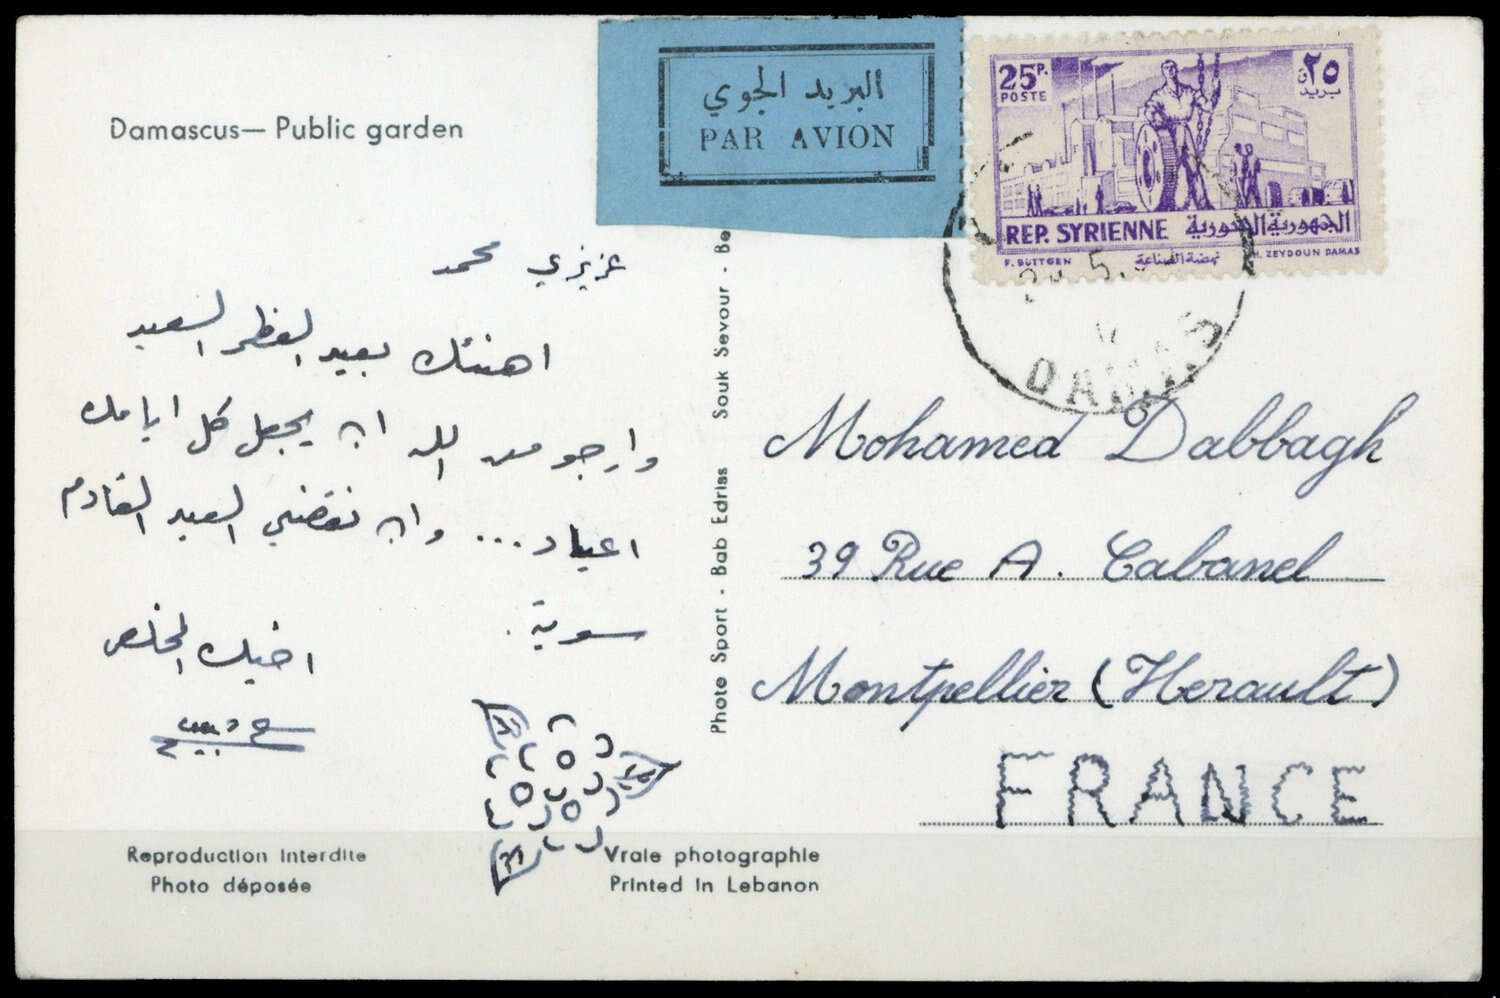 Damascus— Public garden
البريد الجوي
PAR AVION
25P.
POSTE
٢٥
REP. SYRIENNE الجمهورية السورية
F. BÜTTGEN نهضة الصناعة M. ZEYDOUN DAMAS
5
DAMAS
عزيزي محمد
اهنئك بعيد الفطر السعيد
وارجو من الله ان يجعل كل ايامك
اعياد... وان نقضي العيد القادم
سوية.
اخيك المخلص
Mohamed Dabbagh
39 Rue A. Cabanel
Montpellier (Herault)
FRANCE
Photo Sport - Bab Edriss Souk Sevour - Be
Reproduction Interdite
Photo déposée
Vraie photographie
Printed In Lebanon